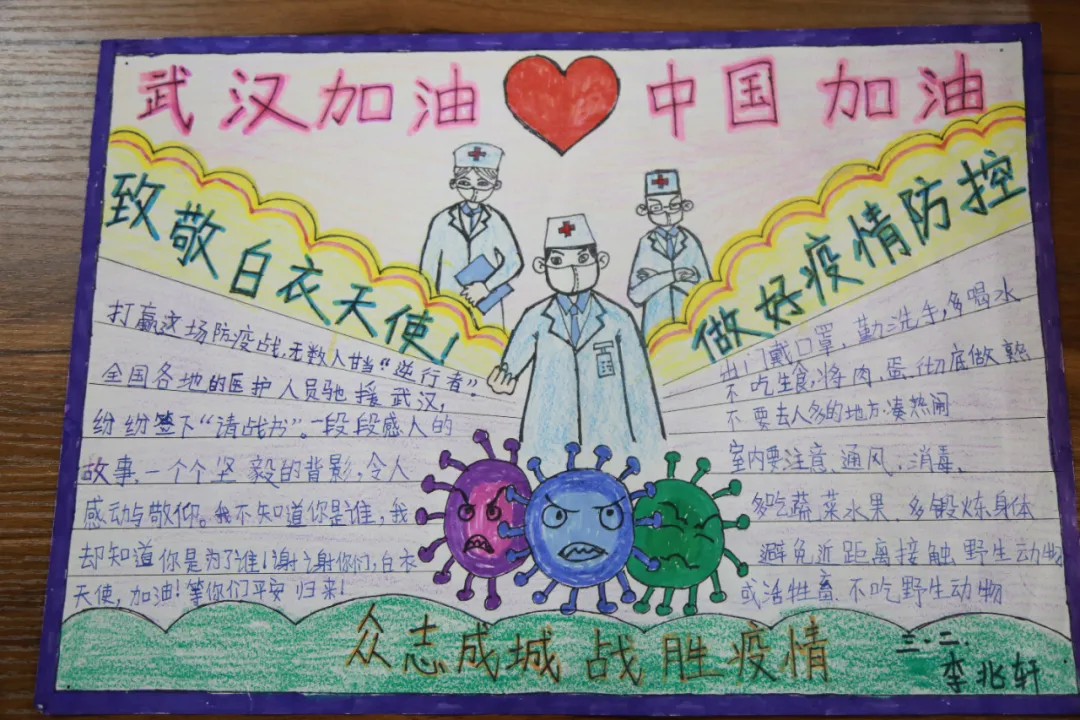 武汉加油 中国加油
致敬白衣天使!
打赢这场防疫战,无数人甘当“逆行者”。
全国各地的医护人员驰援武汉,
纷纷签下“请战书”。一段段感人的
故事,一个个坚毅的背影,令人
感动与敬仰。我不知道你是谁,我
却知道你是为了谁!谢谢你们,白衣
天使,加油!等你们平安归来!
做好疫情防控
出门戴口罩、勤洗手,多喝水
不吃生食,将肉、蛋彻底做熟
不要去人多的地方凑热闹
室内要注意通风、消毒、
多吃蔬菜水果、多锻炼身体
避免近距离接触野生动物
或活牲畜,不吃野生动物
众志成城 战胜疫情
三·二
李兆轩